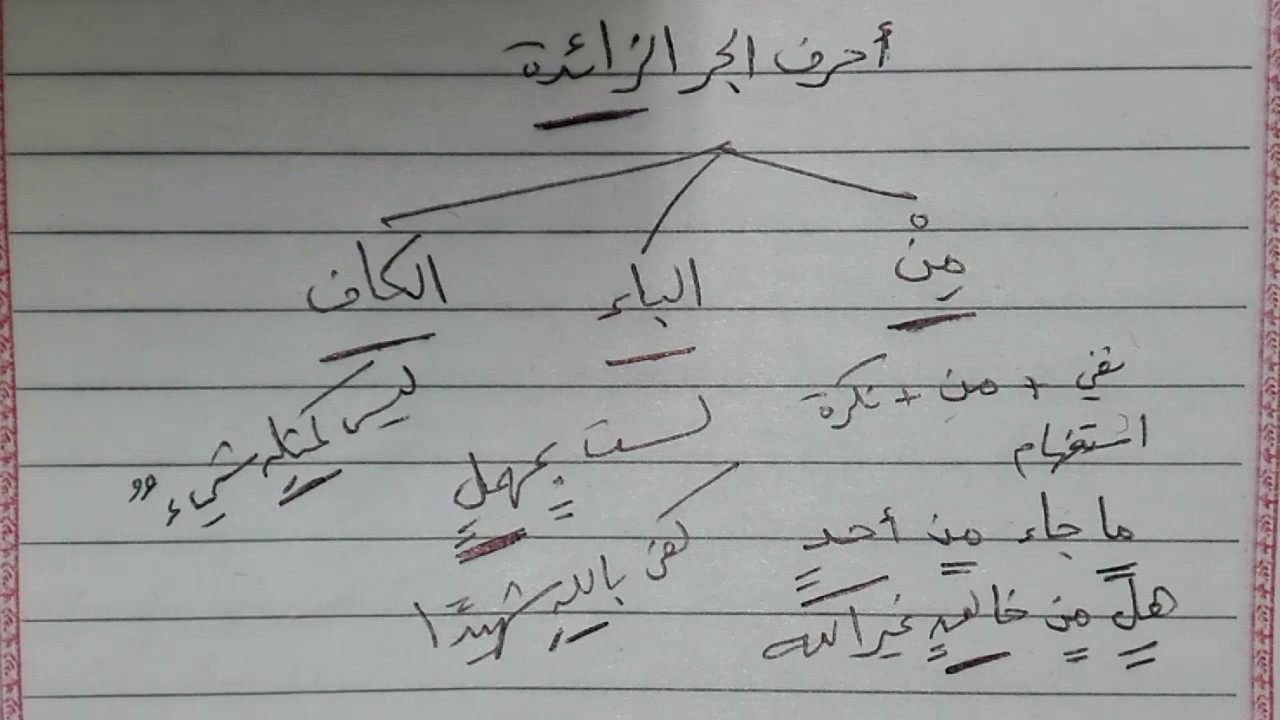 أحرف الجر الزائدة
مِنْ الباء الكاف
نفي + من + نكرة
استفهام
ما جاء من أحدٍ
هل من خالقٍ غير الله
لست بمهملٍ
كفى باللهِ شهيدًا
ليس كمثلِه شيءٌ